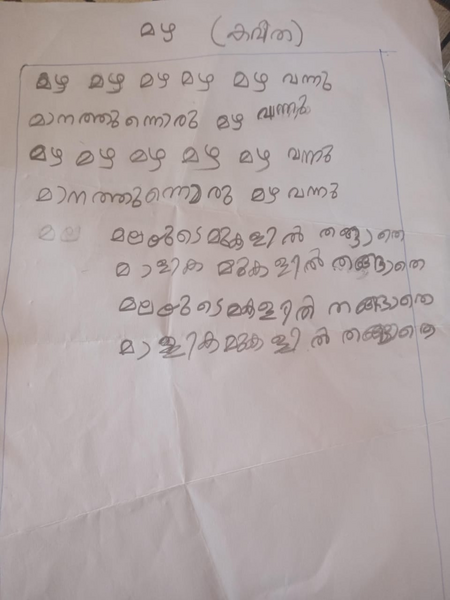 മഴ (കവിത)
മഴ മഴ മഴ മഴ മഴ വന്നു
മാനത്തുന്നൊരു മഴ വന്നു
മഴ മഴ മഴ മഴ മഴ വന്നു
മാനത്തുന്നൊരു മഴ വന്നു
മല മലയുടെ മുകളിൽ തങ്ങാതെ
മാളിക മുകളിൽ തങ്ങാതെ
മലയുടെ മകളിൽ തങ്ങാതെ
മാളിക മുകളിൽ തങ്ങാതെ